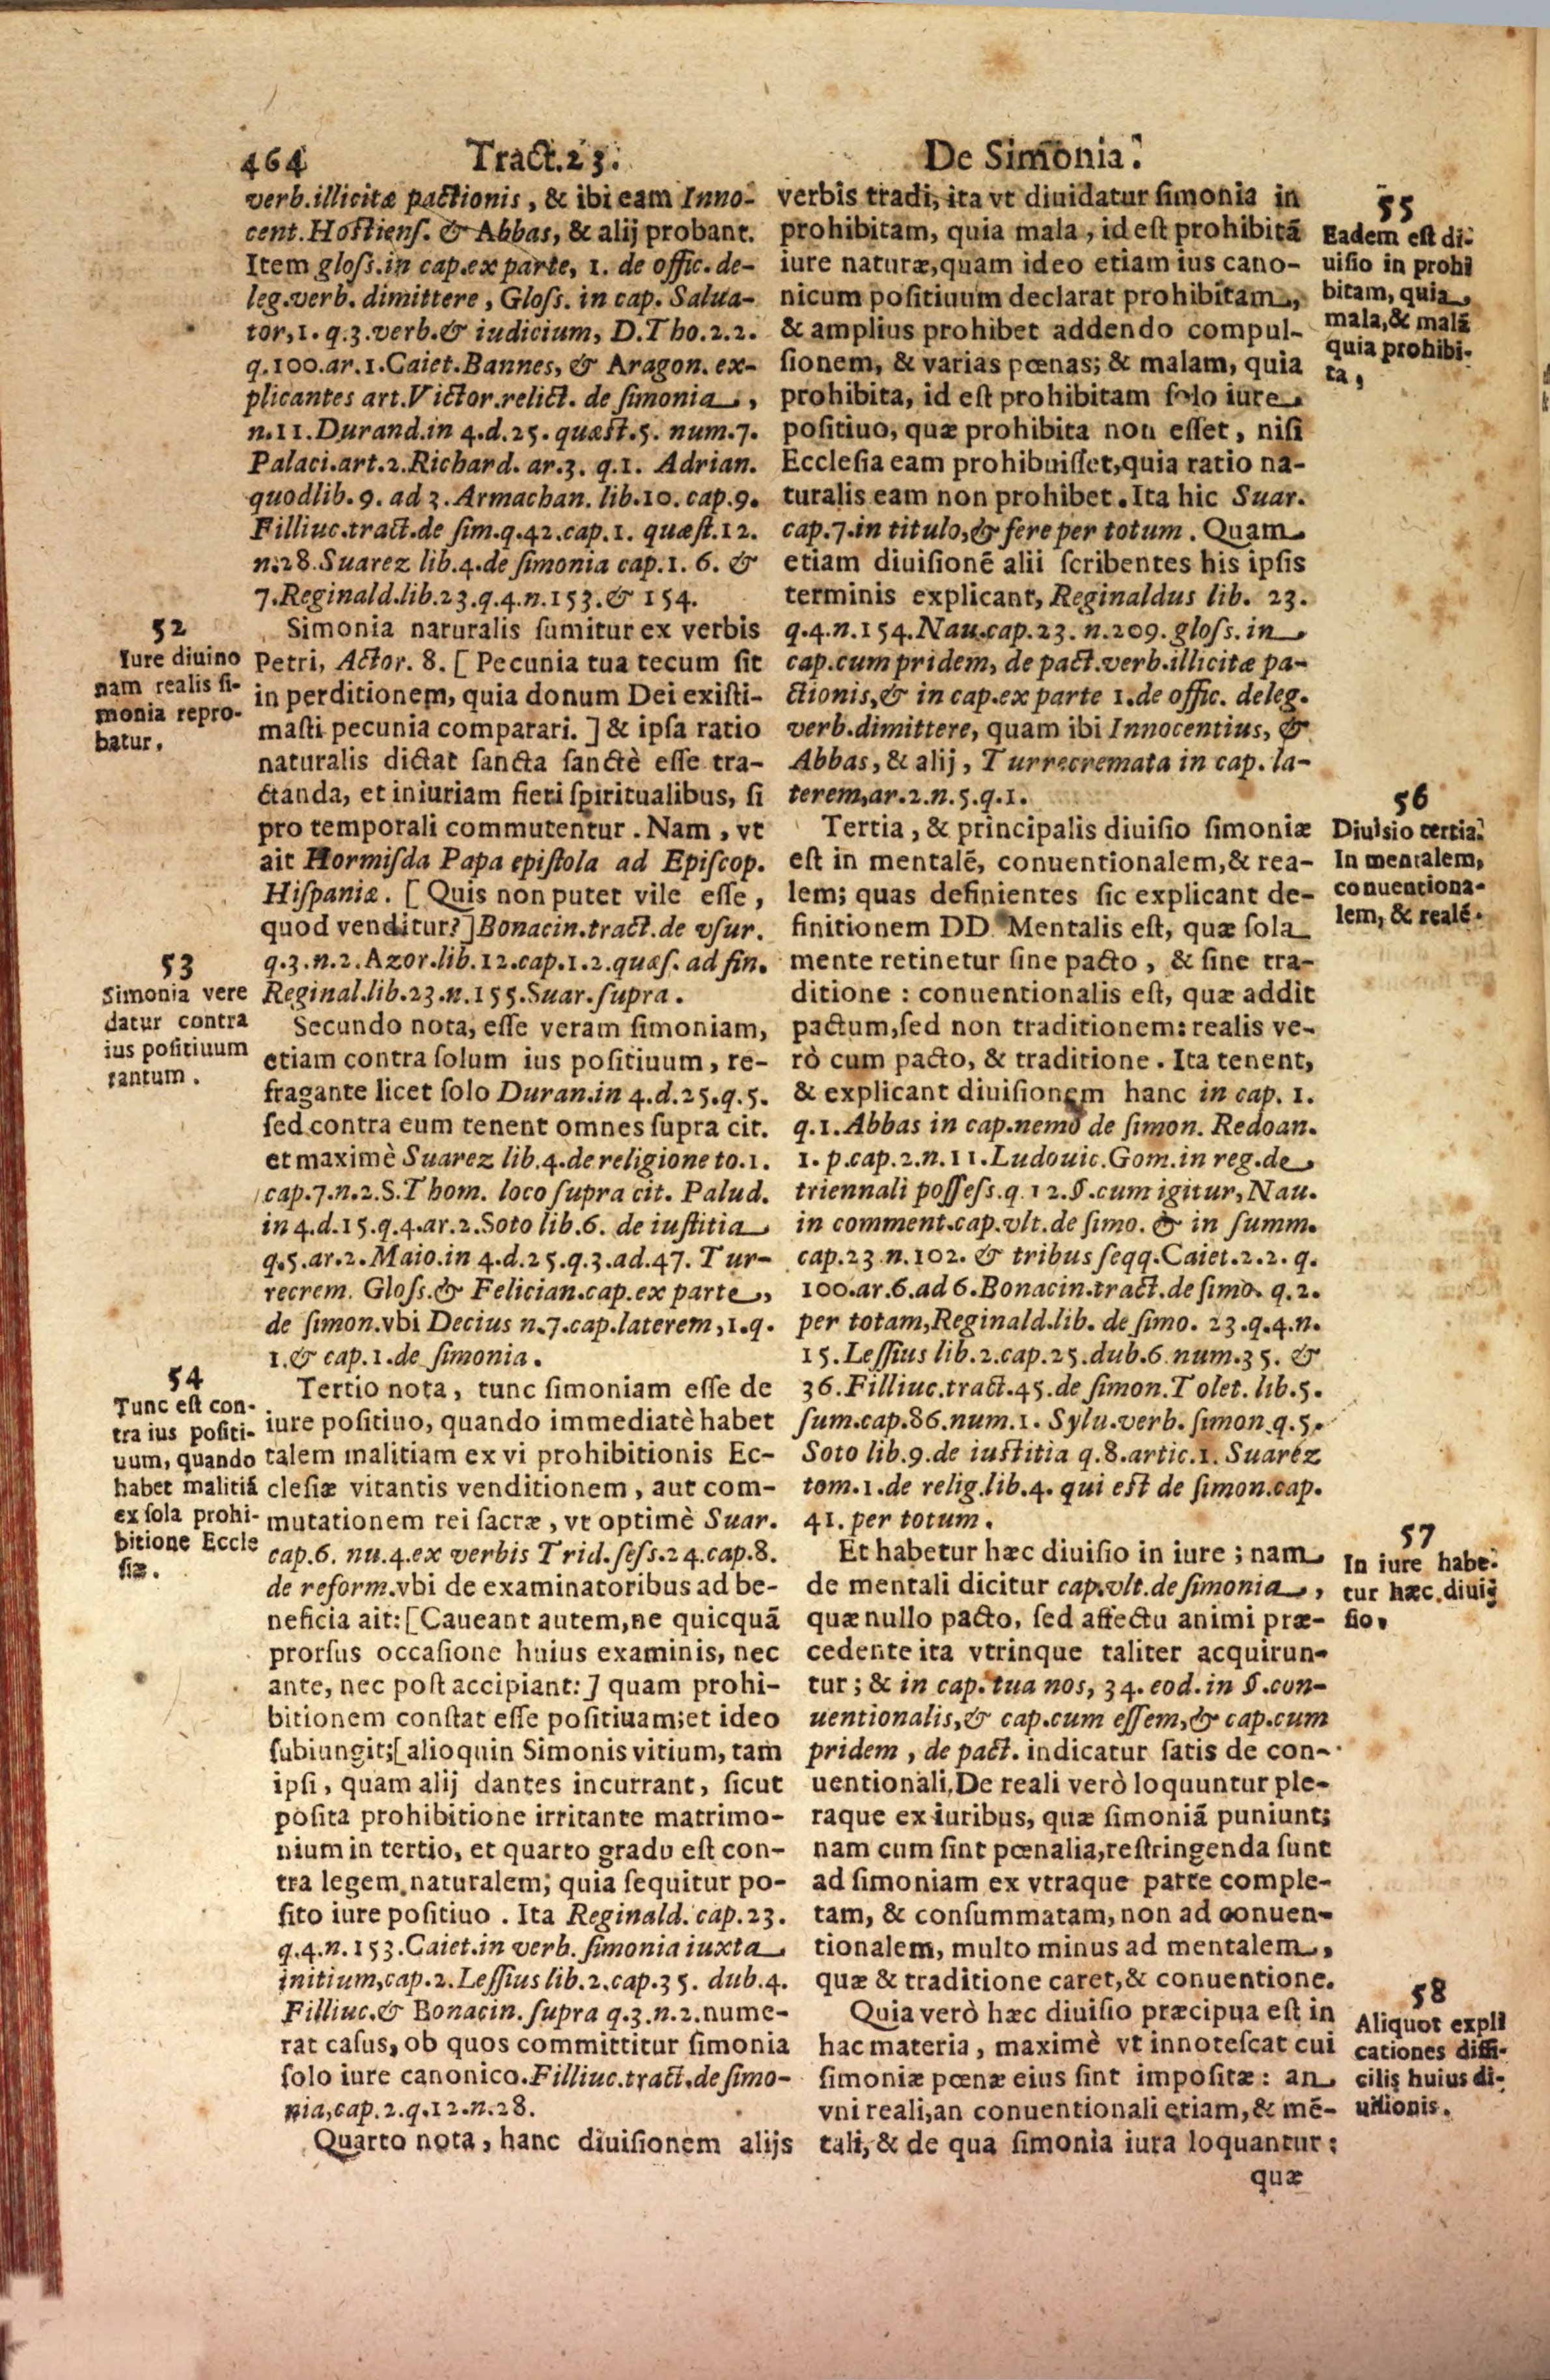 464 Tract.23. De Simonia.
verb.illicitæ pactionis, & ibi eam Inno-
cent.Hostiens. & Abbas, & alij probant.
Item gloss.in cap.ex parte, 1. de offic. de-
leg.verb. dimittere, Gloss. in cap. Salua-
tor, 1. q.3.verb.& iudicium, D.Tho.2.2.
q.100.ar.1.Caiet.Bannes, & Aragon. ex-
plicantes art.Victor.relict. de simonia,
n.11.Durand.in 4.d.25. quæst.5. num.7.
Palaci.art.2.Richard. ar.3. q.1. Adrian.
quodlib. 9. ad 3. Armachan. lib.10. cap.9.
Filliuc.tract.de sim.q.42.cap.1. quæst.12.
n.28.Suarez lib.4.de simonia cap.1. 6. &
7.Reginald.lib.23.q.4.n.153.& 154.
52
Iure diuino
nam realis si-
monia repro-
batur.
Simonia naturalis sumitur ex verbis
Petri, Actor. 8. [Pecunia tua tecum sit
in perditionem, quia donum Dei existi-
masti pecunia comparari.] & ipsa ratio
naturalis dictat sancta sanctè esse tra-
ctanda, et iniuriam fieri spiritualibus, si
pro temporali commutentur. Nam, vt
ait Hormisda Papa epistola ad Episcop.
Hispaniæ. [Quis non putet vile esse,
quod venditur?] Bonacin.tract.de vsur.
q.3.n.2.Azor.lib.12.cap.1.2.quæs. ad fin.
Reginal.lib.23.n.155.Suar.supra.
53
Simonia vere
datur contra
ius positiuum
tantum.
Secundo nota, esse veram simoniam,
etiam contra solum ius positiuum, re-
fragante licet solo Duran.in 4.d.25.q.5.
sed contra eum tenent omnes supra cit.
et maximè Suarez lib.4.de religione to.1.
cap.7.n.2.S.Thom. loco supra cit. Palud.
in 4.d.15.q.4.ar.2.Soto lib.6. de iustitia
q.5.ar.2.Maio.in 4.d.25.q.3.ad.47. Tur-
recrem. Gloss.& Felician.cap.ex parte,
de simon.vbi Decius n.7.cap.laterem, 1.q.
1.& cap.1.de simonia.
54
Tunc est con-
tra ius positi-
uum, quando
habet malitiã
ex sola prohi-
bitione Eccle
siæ.
Tertio nota, tunc simoniam esse de
iure positiuo, quando immediatè habet
talem malitiam ex vi prohibitionis Ec-
clesiæ vitantis venditionem, aut com-
mutationem rei sacræ, vt optimè Suar.
cap.6. nu.4.ex verbis Trid.sess.24.cap.8.
de reform.vbi de examinatoribus ad be-
neficia ait: [Caueant autem, ne quicquã
prorsus occasione huius examinis, nec
ante, nec post accipiant:] quam prohi-
bitionem constat esse positiuam; et ideo
subiungit; [alioquin Simonis vitium, tam
ipsi, quam alij dantes incurrant, sicut
posita prohibitione irritante matrimo-
nium in tertio, et quarto gradu est con-
tra legem naturalem; quia sequitur po-
sito iure positiuo. Ita Reginald. cap.23.
q.4.n.153.Caiet.in verb. simonia iuxta
initium, cap.2.Lessius lib.2.cap.35. dub.4.
Filliuc.& Bonacin. supra q.3.n.2.nume-
rat casus, ob quos committitur simonia
solo iure canonico.Filliuc.tract.de simo-
nia, cap.2.q.12.n.28.
Quarto nota, hanc diuisionem alijs
verbis tradi, ita vt diuidatur simonia in
prohibitam, quia mala, id est prohibitã
iure naturæ, quam ideo etiam ius cano-
nicum positiuum declarat prohibitam,
& amplius prohibet addendo compul-
sionem, & varias pœnas; & malam, quia
prohibita, id est prohibitam solo iure
positiuo, quæ prohibita non esset, nisi
Ecclesia eam prohibuisset, quia ratio na-
turalis eam non prohibet. Ita hic Suar.
cap.7.in titulo, & fere per totum. Quam
etiam diuisionẽ alii scribentes his ipsis
terminis explicant, Reginaldus lib. 23.
q.4.n.154.Nau.cap.23. n.209. gloss. in
cap.cum pridem, de pact.verb.illicitæ pa-
ctionis, & in cap.ex parte 1.de offic. deleg.
verb.dimittere, quam ibi Innocentius, &
Abbas, & alij, Turrecremata in cap. la-
terem, ar.2.n.5.q.1.
55
Eadem est di-
uisio in prohi
bitam, quia
mala, & malã
quia prohibi-
ta,
56
Diuisio tertia.
In mentalem,
conuentiona-
lem, & realẽ.
Tertia, & principalis diuisio simoniæ
est in mentalẽ, conuentionalem, & rea-
lem; quas definientes sic explicant de-
finitionem DD. Mentalis est, quæ sola
mente retinetur sine pacto, & sine tra-
ditione: conuentionalis est, quæ addit
pactum, sed non traditionem: realis ve-
rò cum pacto, & traditione. Ita tenent,
& explicant diuisionem hanc in cap. 1.
q.1.Abbas in cap.nemo de simon. Redoan.
1. p.cap.2.n.11.Ludouic.Gom.in reg.de
triennali possess.q.12.§.cum igitur, Nau.
in comment.cap.vlt.de simo. & in summ.
cap.23.n.102. & tribus seqq.Caiet.2.2. q.
100.ar.6.ad 6.Bonacin.tract.de simo. q.2.
per totam, Reginald.lib. de simo. 23.q.4.n.
15.Lessius lib.2.cap.25.dub.6.num.35. &
36.Filliuc.tract.45.de simon.Tolet. lib.5.
sum.cap.86.num.1. Sylu.verb. simon.q.5.
Soto lib.9.de iustitia q.8.artic.1. Suarez
tom.1.de relig.lib.4. qui est de simon.cap.
41. per totum.
57
In iure habe-
tur hæc diui-
sio.
Et habetur hæc diuisio in iure; nam
de mentali dicitur cap.vlt.de simonia,
quæ nullo pacto, sed affectu animi præ-
cedente ita vtrinque taliter acquirun-
tur; & in cap. tua nos, 34. eod. in §.con-
uentionalis, & cap.cum essem, & cap.cum
pridem, de pact. indicatur satis de con-
uentionali. De reali verò loquuntur ple-
raque ex iuribus, quæ simoniã puniunt;
nam cum sint pœnalia, restringenda sunt
ad simoniam ex vtraque parte comple-
tam, & consummatam, non ad conuen-
tionalem, multo minus ad mentalem,
quæ & traditione caret, & conuentione.
58
Aliquot expli
cationes diffi-
cilis huius di-
uisionis.
Quia verò hæc diuisio præcipua est in
hac materia, maximè vt innotescat cui
simoniæ pœnæ eius sint impositæ: an
vni reali, an conuentionali etiam, & mẽ-
tali, & de qua simonia iura loquantur:
quæ